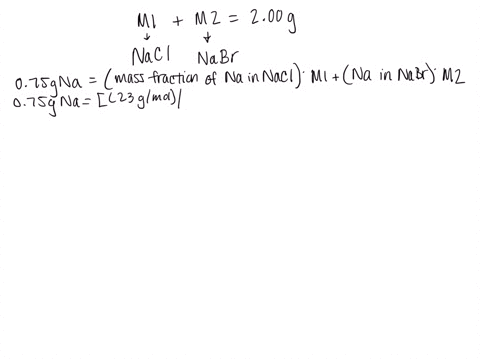 M1 + M2 = 2.00g
↓ ↓
NaCl NaBr
0.75g Na = (mass fraction of Na in NaCl)· M1 + (Na in NaBr)· M2
0.75g Na = [(23 g/mol)/